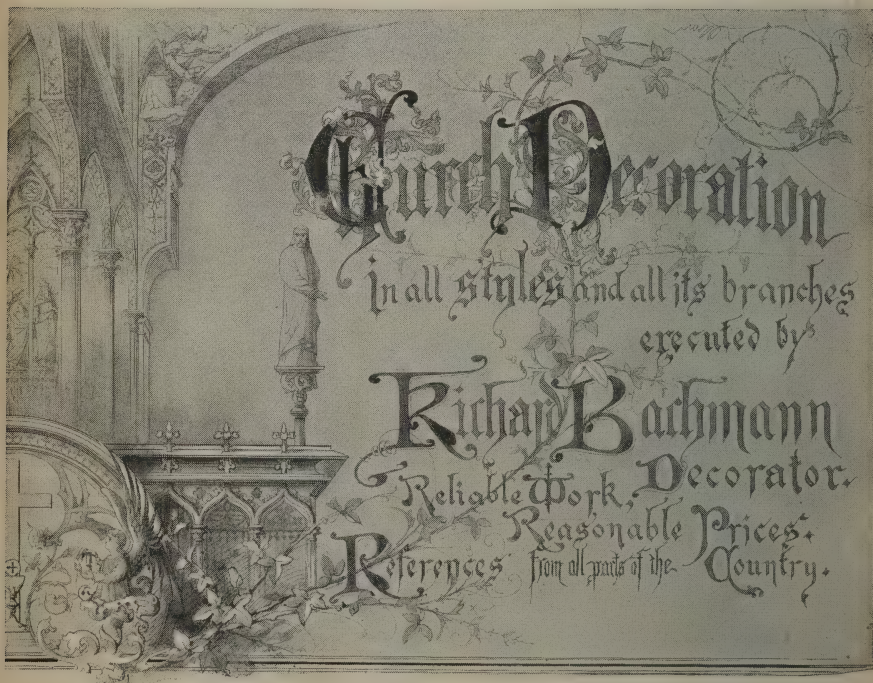 Church Decoration
in all styles and all its branches
executed by
Richard Bachmann
Decorator.
Reliable Work,
Reasonable Prices.
References from all parts of the Country.